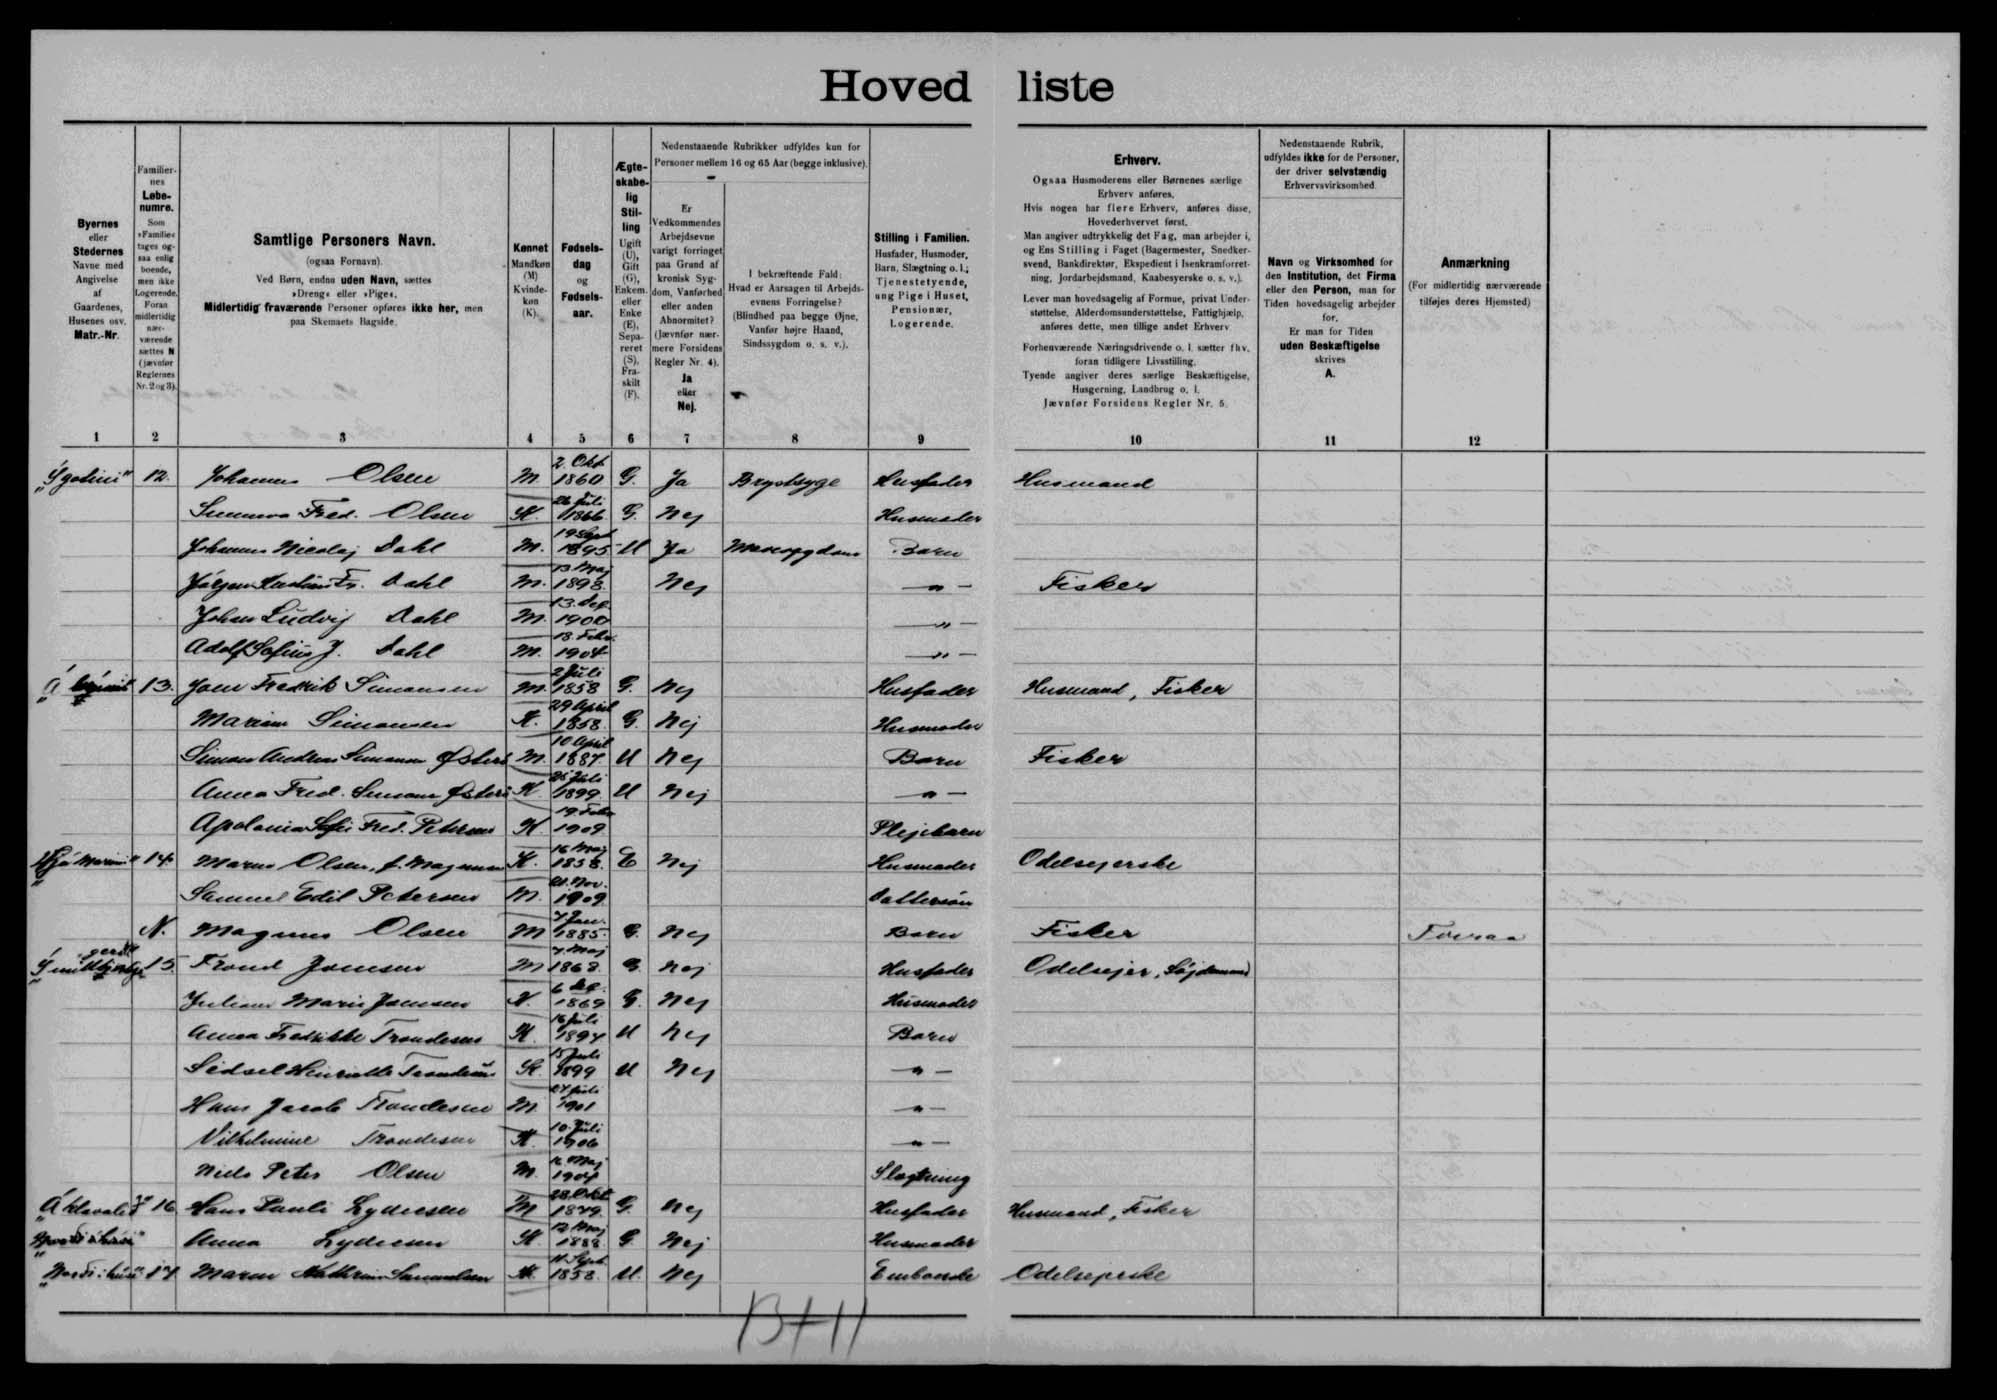 Hoved liste
Byernes
eller
Stedernes
Navne med
Angivelse
af
Gaardenes,
Husenes osv.
Matr.-Nr.
Familier-
nes
Løbe-
numre.
Som
»Familie«
tages og-
saa enlig
boende,
men ikke
Logerende.
Foran
midlertidig
nær-
værende
sættes N
(jævnfør
Reglernes
Nr. 2 og 3).
Samtlige Personers Navn.
(ogsaa Fornavn).
Ved Børn, endnu uden Navn, sættes
»Dreng« eller »Pige«.
Midlertidig fraværende Personer opføres ikke her, men
paa Skemaets Bagside.
Kønnet
Mandkøn
(M)
Kvinde-
køn
(K).
Fødsels-
dag
og
Fødsels-
aar.
Ægte-
skabe-
lig
Stil-
ling
Ugift
(U),
Gift
(G),
Enkem.
eller
Enke
(E),
Sepa-
reret
(S),
Fra-
skilt
(F).
Nedenstaaende Rubrikker udfyldes kun for
Personer mellem 16 og 65 Aar (begge inklusive).
Er
Vedkommendes
Arbejdsevne
varigt forringet
paa Grund af
kronisk Syg-
dom, Vanførhed
eller anden
Abnormitet?
(Jævnfør nær-
mere Forsidens
Regler Nr. 4).
Ja
eller
Nej.
I bekræftende Fald:
Hvad er Aarsagen til Arbejds-
evnens Forringelse?
(Blindhed paa begge Øjne,
Vanfør højre Haand,
Sindssygdom o. s. v.).
Stilling i Familien.
Husfader, Husmoder,
Barn, Slægtning o. l.;
Tjenestetyende,
ung Pige i Huset,
Pensionær,
Logerende.
Erhverv.
Ogsaa Husmoderens eller Børnenes særlige
Erhverv anføres.
Hvis nogen har flere Erhverv, anføres disse,
Hovederhvervet først.
Man angiver udtrykkelig det Fag, man arbejder i,
og Ens Stilling i Faget (Bagermester, Snedker-
svend, Bankdirektør, Ekspedient i Isenkramforret-
ning, Jordarbejdsmand, Kaabesyerske o. s. v.).
Lever man hovedsagelig af Formue, privat Under-
støttelse, Alderdomsunderstøttelse, Fattighjælp,
anføres dette, men tillige andet Erhverv.
Forhenværende Næringsdrivende o. l. sætter fhv.
foran tidligere Livsstilling.
Tyende angiver deres særlige Beskæftigelse,
Husgerning, Landbrug o. l.
Jævnfør Forsidens Regler Nr. 5.
Nedenstaaende Rubrik,
udfyldes ikke for de Personer,
der driver selvstændig
Erhvervsvirksomhed.
Navn og Virksomhed for
den Institution, det Firma
eller den Person, man for
Tiden hovedsagelig arbejder
for.
Er man for Tiden
uden Beskæftigelse
skrives
A.
Anmærkning
(For midlertidig nærværende
tilføjes deres Hjemsted)
1 2 3 4 5 6 7 8 9 10 11 12
12. Johannes Olsen M. 2. Okt. 1860 G. Ja Brystsyge Husfader Husmand
Fred. Olsen K. 26 Juli 1866 G. Nej Husmoder
Johannes Nicolaj Dahl M. 19 Sept 1895 U Ja Barn
Dahl M. 13 Maj 1898 Nej " — Fisker
Johan Ludvig Dahl M. 13. Dec. 1900 " —
Adolf Sofius J. Dahl M. 18. Febr. 1904 " —
13. Joen Fredrik Simonsen M. 2 Juli 1858 G. Nej Husfader Husmand, Fisker
Simonsen K. 29 April 1858. G. Nej Husmoder
Simon Andreas Simonsen M. 10 April 1887. U Nej Barn Fisker
Anna Fred. K. Juli 1899 U Nej " —
Apolonia Sofie Fred. Petersen K. 19. Febr 1909 Plejebarn
14. Maren Olsen, f. Magnussen K. 16 Maj 1858. E Nej Husmoder Odelsejerske
Samuel Edil Petersen M. Nov. 1909 Dattersøn
N. Magnus Olsen M 7 Jan. 1885. G. Nej Barn Fisker
15. Trond Joensen M 7 Maj 1868. G. Nej Husfader Odelsejer,
Juliane Marie Joensen K. 6 Dec. 1869 G. Nej Husmoder
Anna Fredrikke Trondesen K. 16 Juli 1894 U Nej Barn
Sidsel Henriette K. 15 Juli 1899 U Nej " —
Hans Jacob Trondesen M. 27 Juli 1901 " —
Vilhelmine Trondesen K. 10. Juli 1906 " —
Niels Peter Olsen M. Maj 1904 Slægtning
16. Hans Pauli Lydersen M 28. Okt. 1879. G. Nej Husfader Husmand, Fisker
Anna Lydersen K. 12 Maj 1888. G. Nej Husmoder
17 Maren Kathrine Samuelsen K. 11. Sept. 1858. U. Nej Enboende Odelsejerske
13+11